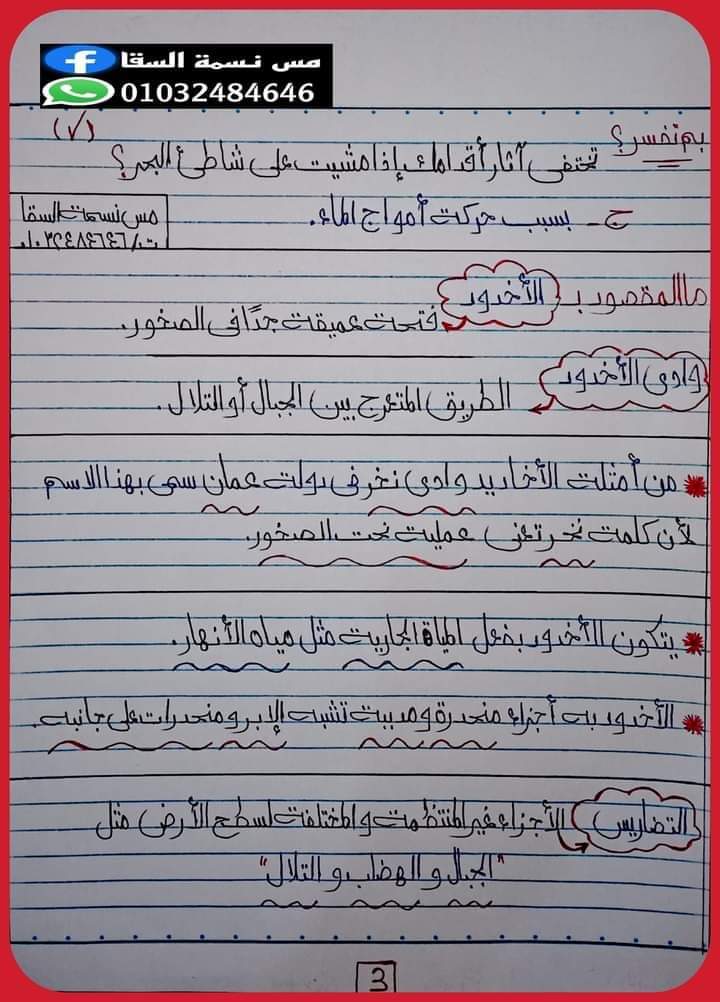 مس نسمة السقا
01032484646
(٧)
بم تفسر؟ تختفى آثار أقدامك إذا مشيت على شاطئ البحر؟
ج - بسبب حركة أمواج الماء.
مس نسمة السقا
ت/ ٠١٠٣٢٤٨٤٦٤٦
ما المقصود بـ الأخدود
فتحة عميقة جدًا فى الصخور.
وادى الأخدود
الطريق المتعرج بين الجبال أو التلال.
من أمثلة الأخاديد وادى نخر فى دولة عمان سمى بهذا الاسم
لأن كلمة نخر تعنى عملية نحت الصخور.
يتكون الأخدود بفعل المياة الجارية مثل مياه الأنهار.
الأخدود به أجزاء منحدرة ومدببة تشبه الإبر ومنحدرات على جانبه.
التضاريس الأجزاء غير المنتظمة والمختلفة لسطح الأرض مثل
"الجبال و الهضاب و التلال"
3